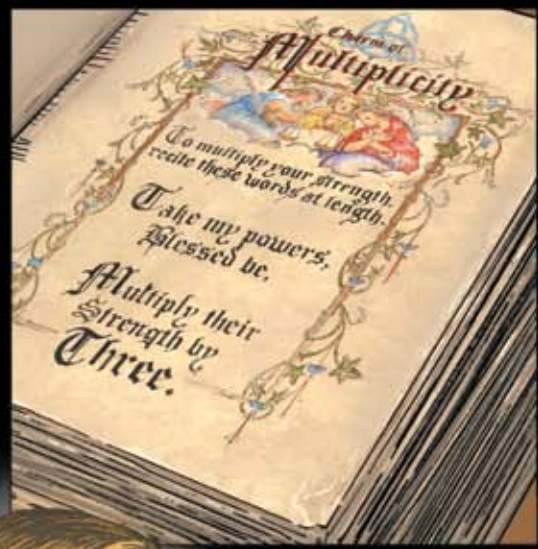 Charm of
Multiplicity
To multiply your strength,
recite these words at length.
Take my powers,
Blessed be,
Multiply their
Strength by
Three.